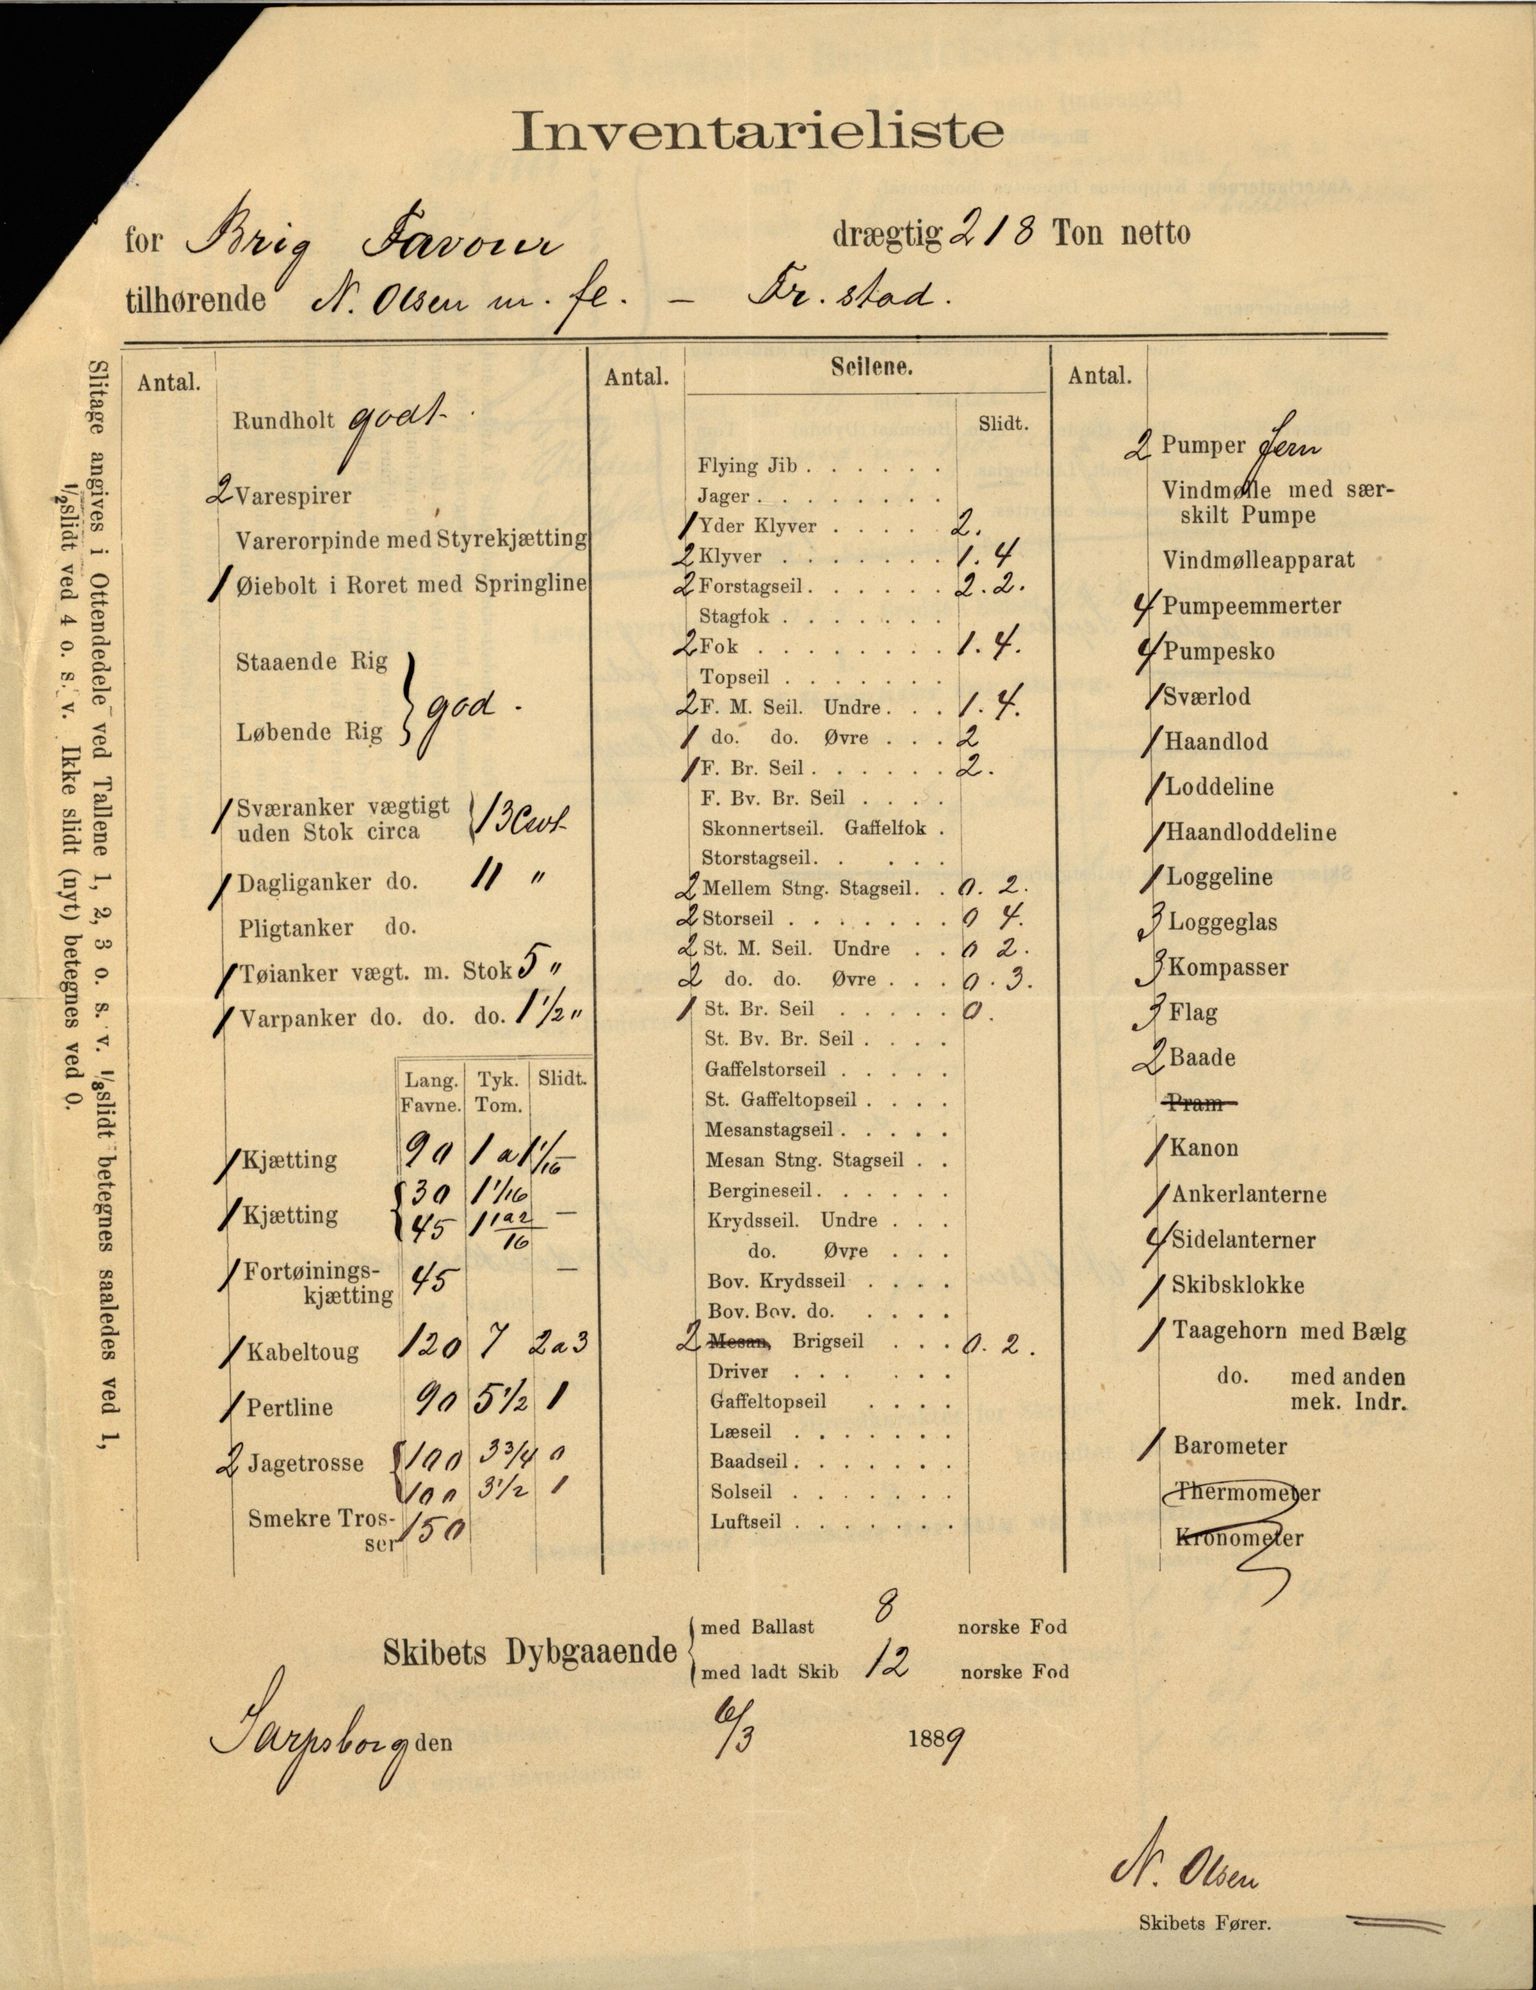 Inventarieliste
for Brig Favour drægtig 218 Ton netto
tilhørende N. Olsen m. fl. – Fr. stad.
Slitage angives i Ottendedele ved Tallene 1, 2, 3 o. s. v. 1/8 slidt betegnes saaledes ved 1,
1/2 slidt ved 4 o. s. v. Ikke slidt (nyt) betegnes ved 0.
Antal.
Rundholt godt.
2 Varespirer
Varerorpinde med Styrekjætting
1 Øiebolt i Roret med Springline
Staaende Rig
god.
Løbende Rig
1 Sværanker vægtigt
uden Stok circa 13 Cwt
1 Dagliganker do. 11 "
Pligtanker do.
1 Tøianker vægt. m. Stok 5 "
1 Varpanker do. do. do. 1 1/2 "
Lang. Tyk. Slidt.
Favne. Tom.
1 Kjætting 90 1 a 1 1/16 –
1 Kjætting 30 1 1/16
45 1 1a2/16 –
1 Fortøinings-
kjætting 45 –
1 Kabeltoug 120 7 2 a 3
1 Pertline 90 5 1/2 1
2 Jagetrosse 100 3 3/4 0
100 3 1/2 1
Smekre Tros-
ser 150
Antal. Seilene.
Slidt.
Flying Jib . . . . . .
Jager . . . . . . . .
1 Yder Klyver . . . . . 2.
2 Klyver . . . . . . . 1. 4
2 Forstagseil . . . . . . 2. 2.
Stagfok . . . . . . .
2 Fok . . . . . . . . 1. 4.
Topseil . . . . . . .
2 F. M. Seil. Undre . . . 1. 4.
1 do. do. Øvre . . . 2
1 F. Br. Seil . . . . . . 2.
F. Bv. Br. Seil . . . .
Skonnertseil. Gaffelfok .
Storstagseil . . . . .
2 Mellem Stng. Stagseil . . 0. 2.
2 Storseil . . . . . . . 0 4.
2 St. M. Seil. Undre . . 0 2.
2 do. do. Øvre . . . 0. 3.
1 St. Br. Seil . . . . . 0.
St. Bv. Br. Seil . . . .
Gaffelstorseil . . . . .
St. Gaffeltopseil . . . .
Mesanstagseil . . . . .
Mesan Stng. Stagseil . .
Bergineseil . . . . . .
Krydsseil. Undre . . .
do. Øvre . . .
Bov. Krydsseil . . . .
Bov. Bov. do. . . . .
2 Mesan, Brigseil . . . 0. 2.
Driver . . . . . .
Gaffeltopseil . . . .
Læseil . . . . . . .
Baadseil . . . . . . .
Solseil . . . . . . .
Luftseil . . . . . . .
Antal.
2 Pumper Jern
Vindmølle med sær-
skilt Pumpe
Vindmølleapparat
4 Pumpeemmerter
4 Pumpesko
1 Sværlod
1 Haandlod
1 Loddeline
1 Haandloddeline
1 Loggeline
3 Loggeglas
3 Kompasser
3 Flag
2 Baade
Pram
1 Kanon
1 Ankerlanterne
4 Sidelanterner
1 Skibsklokke
1 Taagehorn med Bælg
do. med anden
mek. Indr.
1 Barometer
Thermometer
Kronometer
Skibets Dybgaaende
med Ballast 8 norske Fod
med ladt Skib 12 norske Fod
Sarpsborg den 6/3 1889
N. Olsen
Skibets Fører.